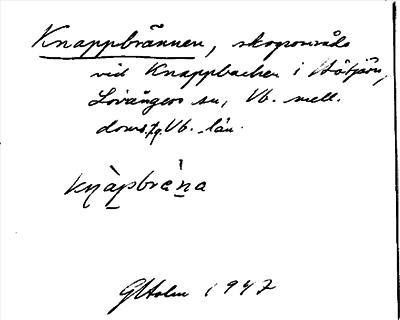 Knappbrännen, skogsområde
vid Knappbacken i Hötjärn,
Lövångers sn, Vb. mell.
doms., Vb. län.
knàpbrä̀na
GHolm 1947